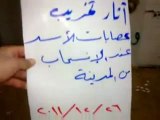 آثار تخريب
وعصابات الأسد
عند الإنسحاب
من المدينة
٢٠١١/١٢/٢٦